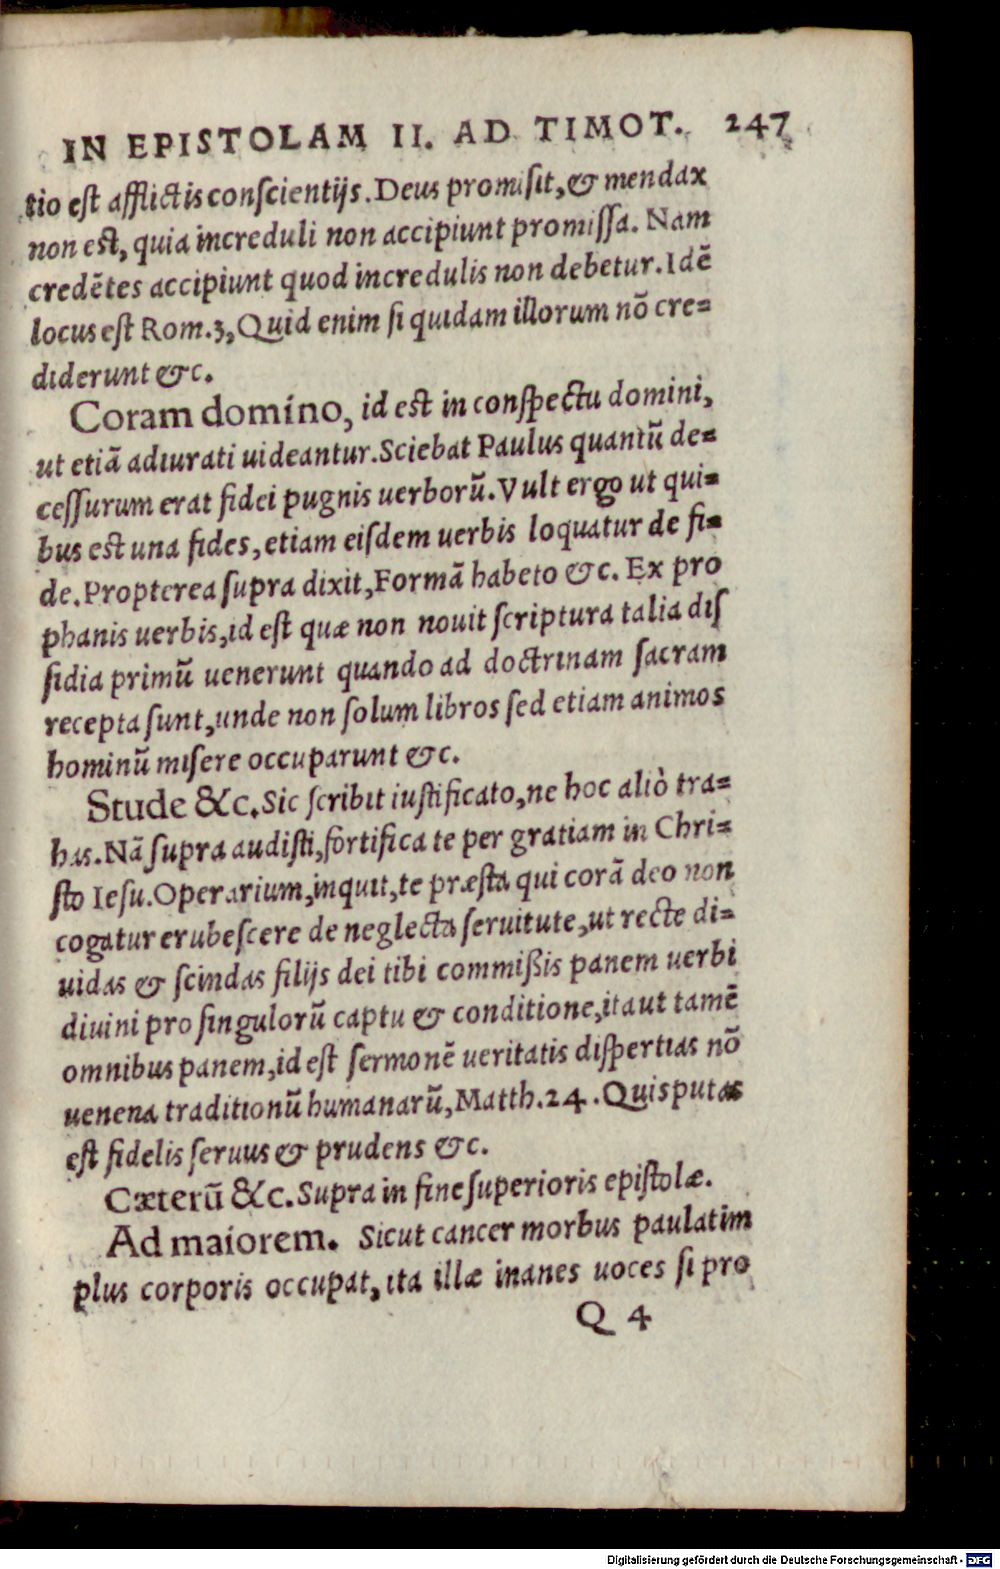 IN EPISTOLAM II. AD TIMOT. 247
tio est afflictis conscientijs. Deus promisit, & mendax
non est, quia increduli non accipiunt promissa. Nam
credētes accipiunt quod incredulis non debetur. Idē
locus est Rom. 3, Quid enim si quidam illorum nō cre=
diderunt &c.
Coram domino, id est in conspectu domini,
ut etiā adiurati uideantur. Sciebat Paulus quantū de=
cessurum erat fidei pugnis uerborū. Vult ergo ut qui=
bus est una fides, etiam eisdem uerbis loquatur de fi=
de. Propterea supra dixit, Formā habeto &c. Ex pro
phanis uerbis, id est quæ non nouit scriptura talia dis
sidia primū uenerunt quando ad doctrinam sacram
recepta sunt, unde non solum libros sed etiam animos
hominū misere occuparunt &c.
Stude &c. Sic scribit iustificato, ne hoc aliò tra=
has. Nā supra audisti, fortifica te per gratiam in Chri=
sto Iesu. Operarium, inquit, te præsta qui corā deo non
cogatur erubescere de neglecta seruitute, ut recte di=
uidas & scindas filijs dei tibi commißis panem uerbi
diuini pro singulorū captu & conditione, ita ut tamē
omnibus panem, id est sermonē ueritatis dispertias nō
uenena traditionū humanarū, Matth. 24. Quis putas
est fidelis seruus & prudens &c.
Cæterū &c. Supra in fine superioris epistolæ.
Ad maiorem. Sicut cancer morbus paulatim
plus corporis occupat, ita illæ inanes uoces si pro
Q 4
Digitalisierung gefördert durch die Deutsche Forschungsgemeinschaft - DFG